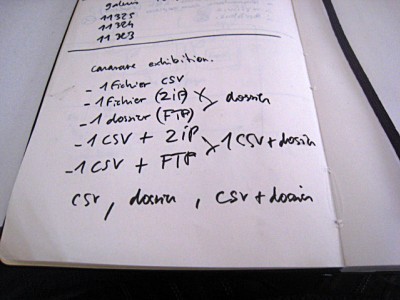 galerie
11325
11324
11323
exhibition.
- 1 Fichier CSV
- 1 Fichier (ZiP) dossier
- 1 dossier (FTP)
- 1 CSV + ZiP 1 CSV + dossier
- 1 CSV + FTP
CSV, dossier, CSV + dossier